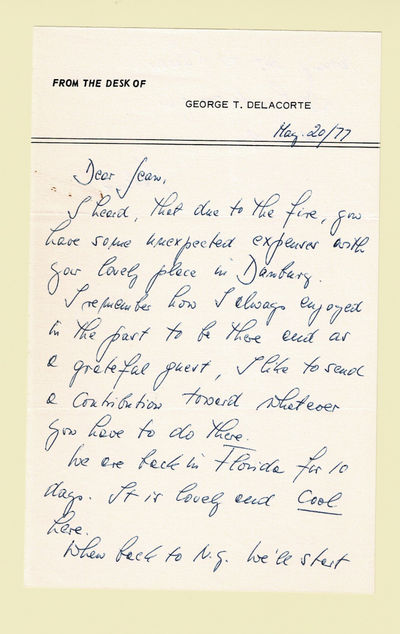 FROM THE DESK OF
GEORGE T. DELACORTE
May. 20/77
Dear Sean,
I heard, that due to the fire, you
have some unexpected expenses with
your lovely place in Danburg.
I remember how I always enjoyed
in the past to be there and as
a grateful guest, I like to send
a contribution toward whatever
you have to do there.
We are back in Florida for 10
days. It is lovely and cool
here.
When back to N.Y. we'll start